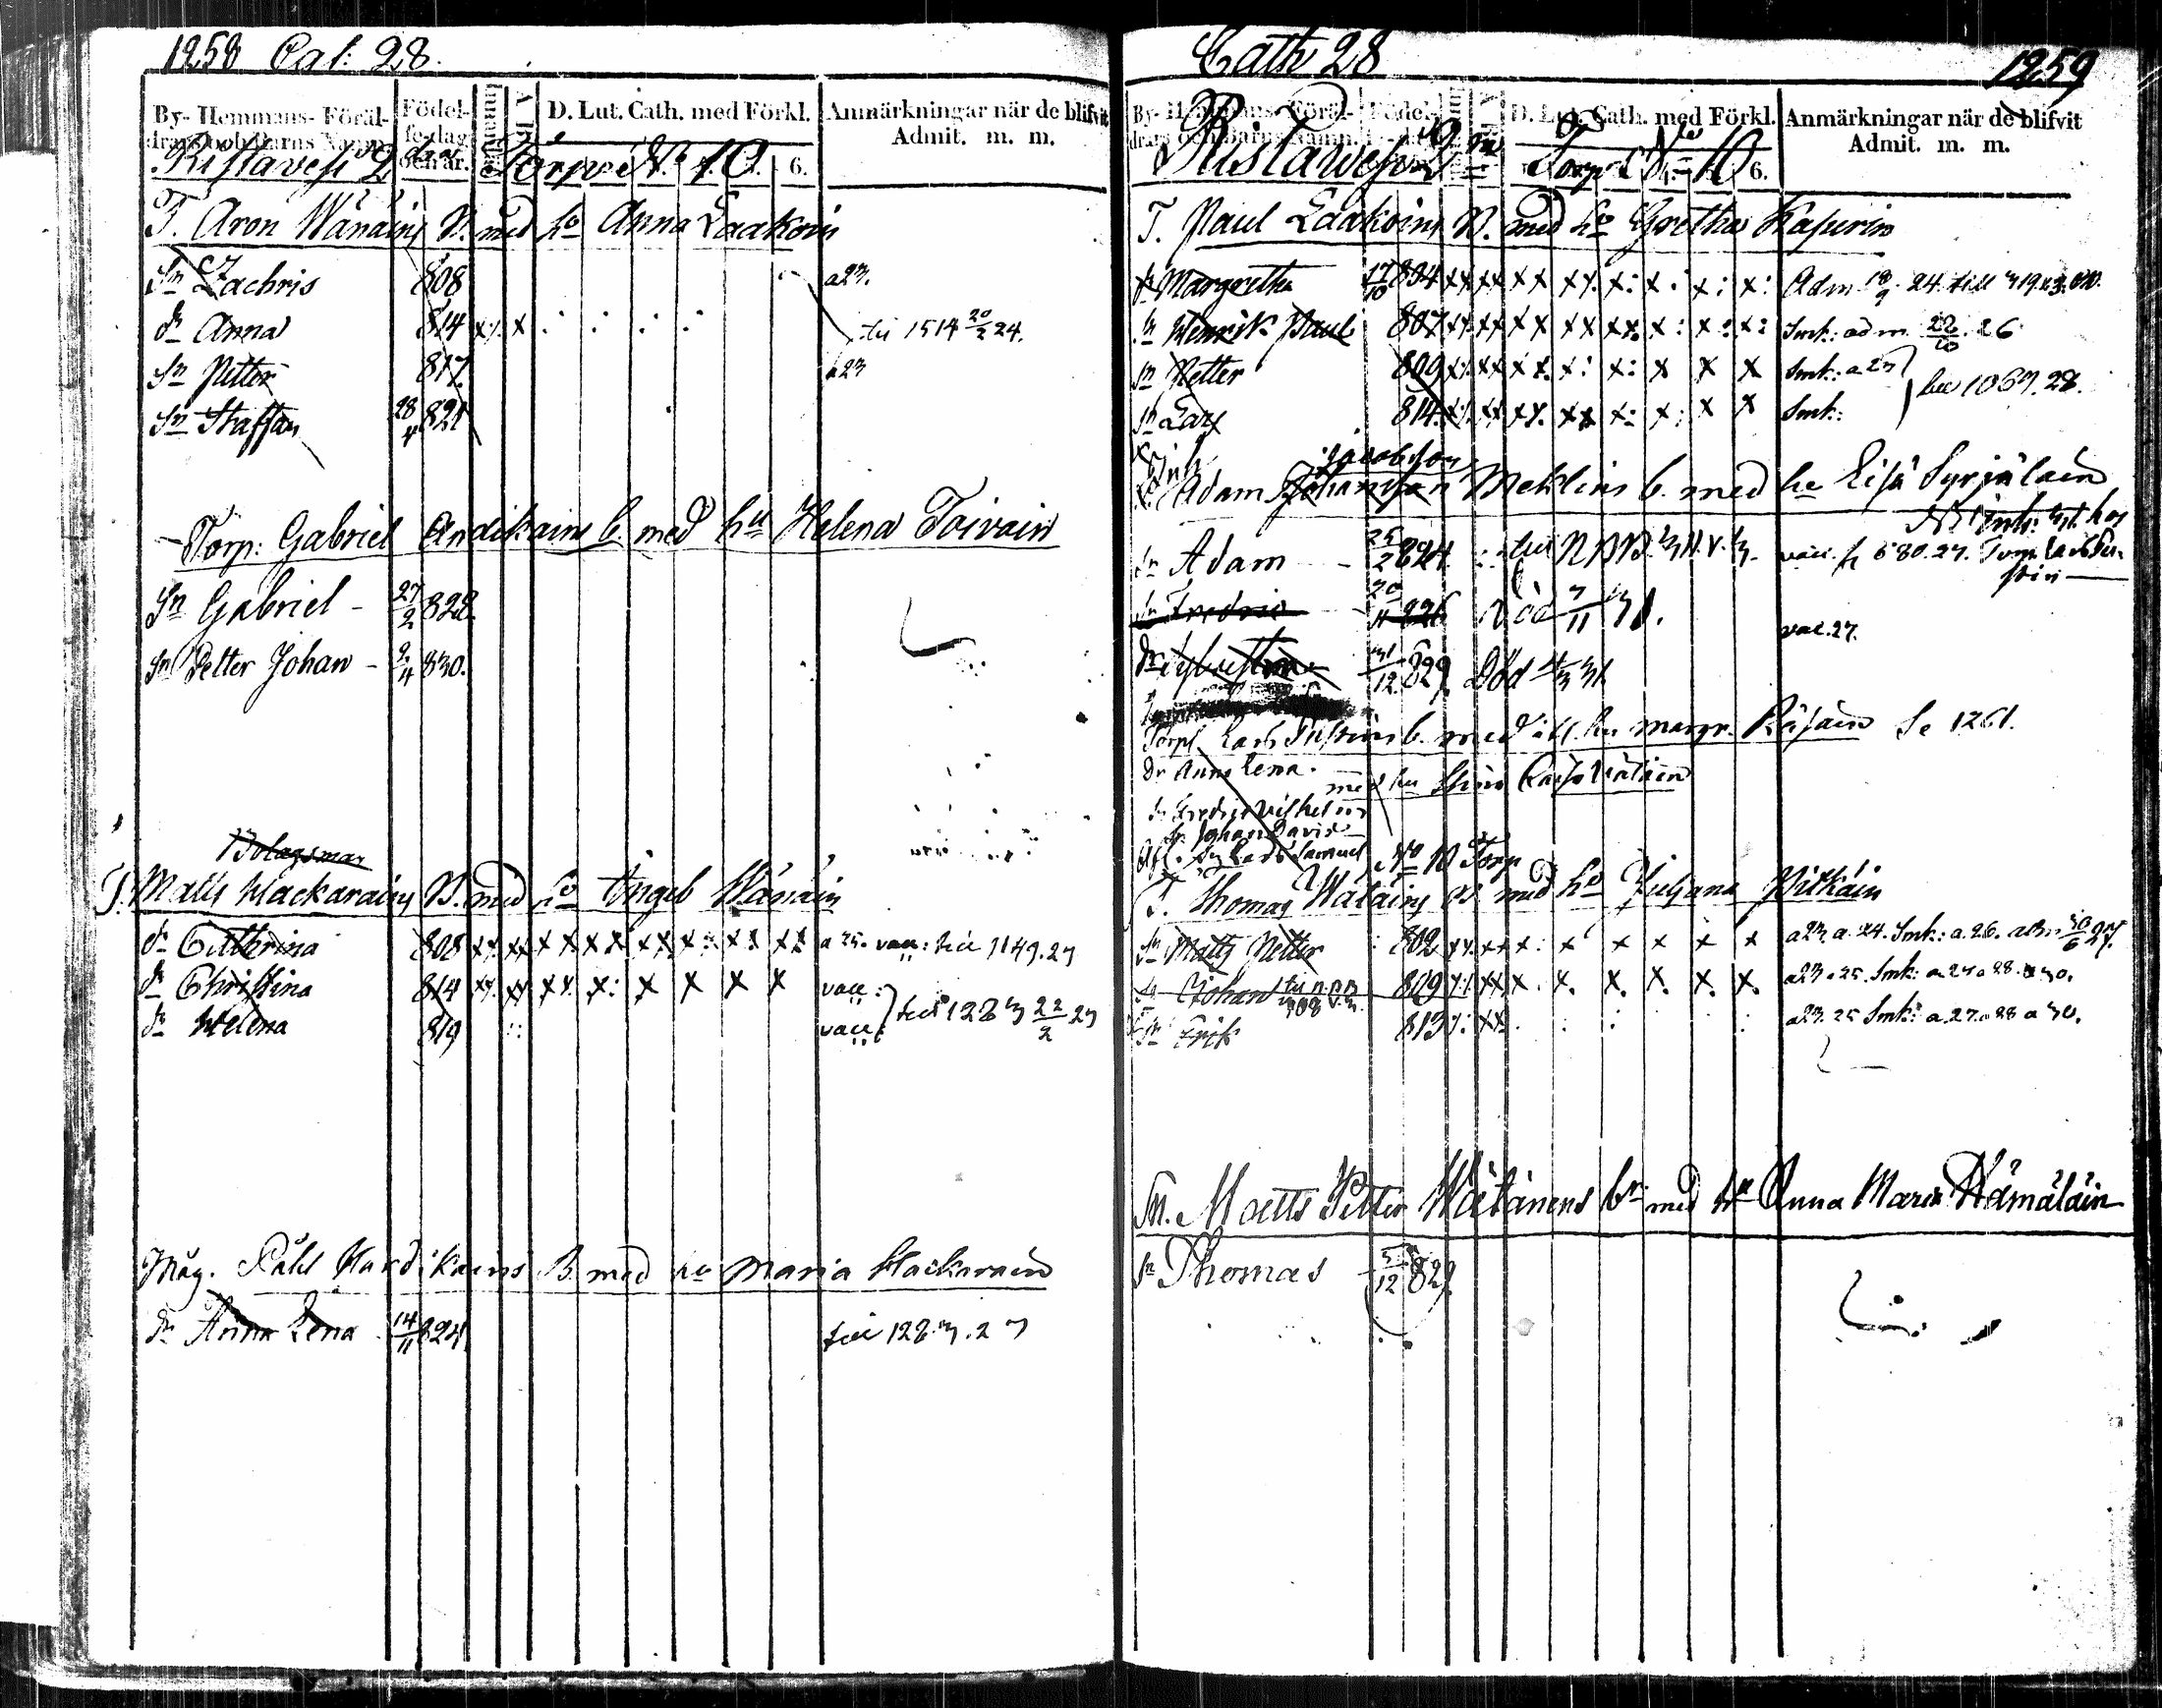 1258 Cat: 28.
By- Hemmans- Föräl- drars och Barns Namn.
Födel- sedag och år.
D. Lut. Cath. med Förkl.
6.
Anmärkningar när de blifvit Admit. m. m.
Ristavesi 2 Torp N:o 10
T. Aron Wänäins B. med ho Anna Laakoin
Sn Zachris 808 a23.
dr Anna 814 x/. x till 1514 20/2 24.
Sn Petter 817 a23
Sn Staffan 28/4 821
Torp: Gabriel Andikains b. med hu Helena Toivain
Sn Gabriel - 27/2 828.
Sn Petter Johan - 9/11 830.
Bolagsman
T. Matts Hackarains B. med ho Ingeb Wänäin
dr Cathrina 808 a 25. vacc: till 1149.27
dr Christina 814 vacc:
till 1283 22/2 27
dr Helena 819 vacc:
Måg. Påhl Hardikains B. med hu Maria Hackarain
dr Anna Lena 14/11 824. till 1283.27
Cath 28
1259
By- Hemmans- Föräl- drars och Barns Namn.
Födel-
D. Lut. Cath. med Förkl.
6.
Anmärkningar när de blifvit Admit. m. m.
Ristawesi 2 Torp N:o 10
T. Paul Laakoins B. med ho Gretha Kasurin
dr Margretha 17/10 804 Adm 18/9 24 till
Sn Henrik Paul 807 Smk: adm 22/10 26
Sn Petter 809 Smk: a 27
till 1067.28.
Sn Lars 814 Smk:
Jacobson
Inh. Adam Johansson Meklins b. med hu Lisa Syrjäläin
Sn Adam - 25/2 824. vacc. fr 680.27.
Sn Fredric 20/11 826 Död 7/11 31.
vac. 27.
dr 31/12 829 Död 31
Torp. Lars b. med afl. hu Margr. Räsäin Se 1261.
Dr Anna Lena.
med hu Stina
Sn Fredric Vilhelm
Sn Johan David
Sn Lars Samuel
No 10 Torp
T. Thomas Watains B med ho Juliana Pitkäin
Sn Matts Petter 802 a23. a 24. Smk: a. 26. adm 30/6 27.
Sn Johan 809 a23. 25. Smk: a 27 a 28. a 30.
Sn Erik 813 a23. 25 Smk: a 27. a 28 a 30.
Sn. Matts Petter Wätänens bn med hu Anna Maria Hämäläin
Sn Thomas 5/12 829.